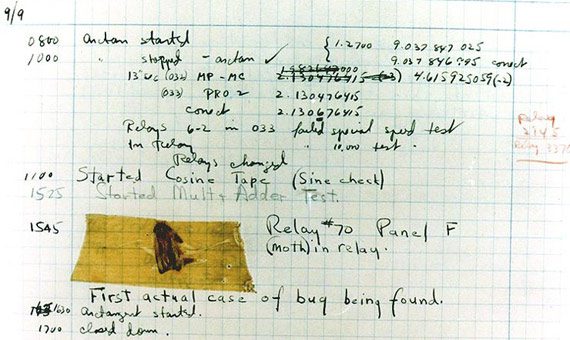 9/9
0800 Antan started
1000 " stopped - antan ✓ { 1.2700 9.037 847 025
9.037 846 995 correct
13"uc (032) MP - MC 2.130476415 (-3) 4.615925059(-2)
(033) PRO 2 2.130476415
correct 2.130676415
Relays 6-2 in 033 failed special speed test
in relay " 10,000 test.
Relay
2145
Relay 3370
Relays changed
1100 Started Cosine Tape (Sine check)
1525 Started Mult + Adder Test.
1545 Relay #70 Panel F
(moth) in relay.
First actual case of bug being found.
1630 antangent started.
1700 closed down.